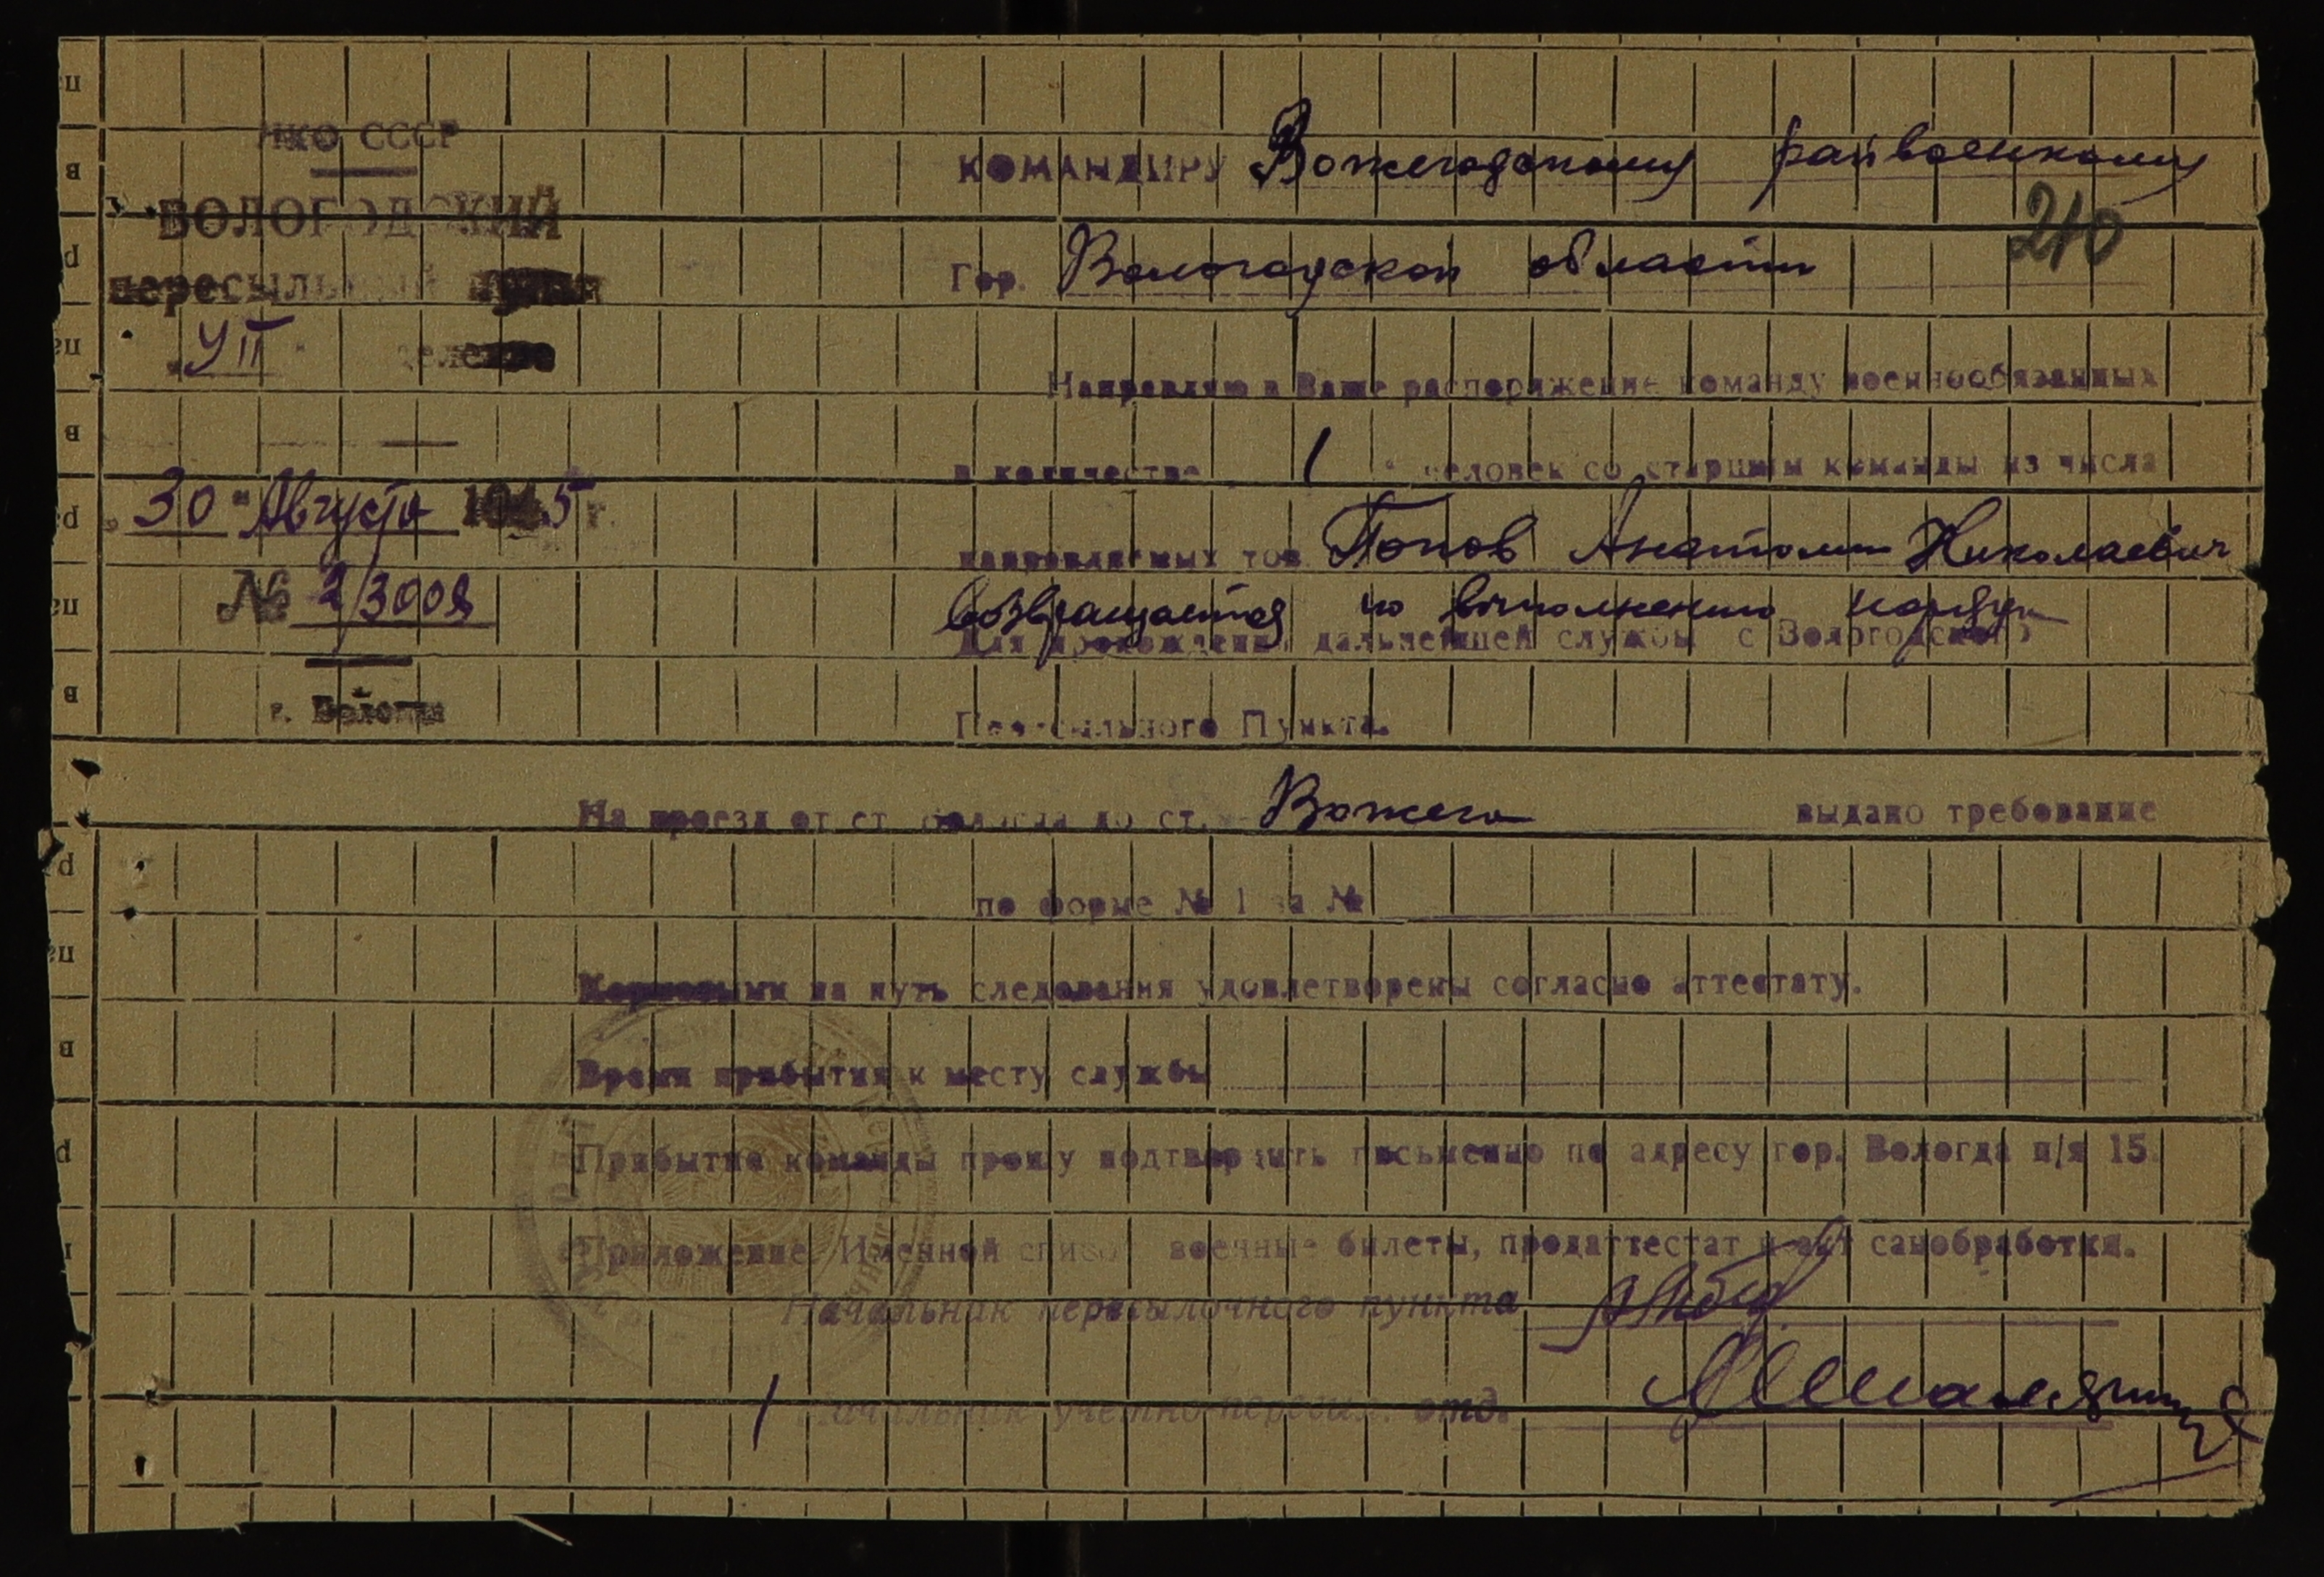 НКО СССР
ВОЛОГОДСКИЙ
пересыльный пункт
"УII" отделение
"30" Августа 1945 г.
№ 2/3009
г. Вологда
КОМАНДИРУ Вожегодскому райвоенкому
210
Гор. Вологодской области
Направляю в Ваше распоряжение команду военнообязанных
в количестве 1 человек со старшим команды из числа
направляемых тов. Попов Анатолий Николаевич
возвращается по выполнению наряда
Для прохождения дальнейшей службы с Вологодского
Пересыльного Пункта.
На проезд от ст. Вологда до ст. Вожега выдано требование
по форме № 1 за №
Кормовыми на путь следования удовлетворены согласно аттестату.
Время прибытия к месту службы
Прибытие команды прошу подтвердить письменно по адресу гор. Вологда п/я 15.
Приложение: Именной список, военные билеты, продаттестат и акт санобработки.
Начальник пересылочного пункта
Начальник учетно-пересыл. отд.
па
в
ра
па
в
ра
па
в
ра
па
в
р